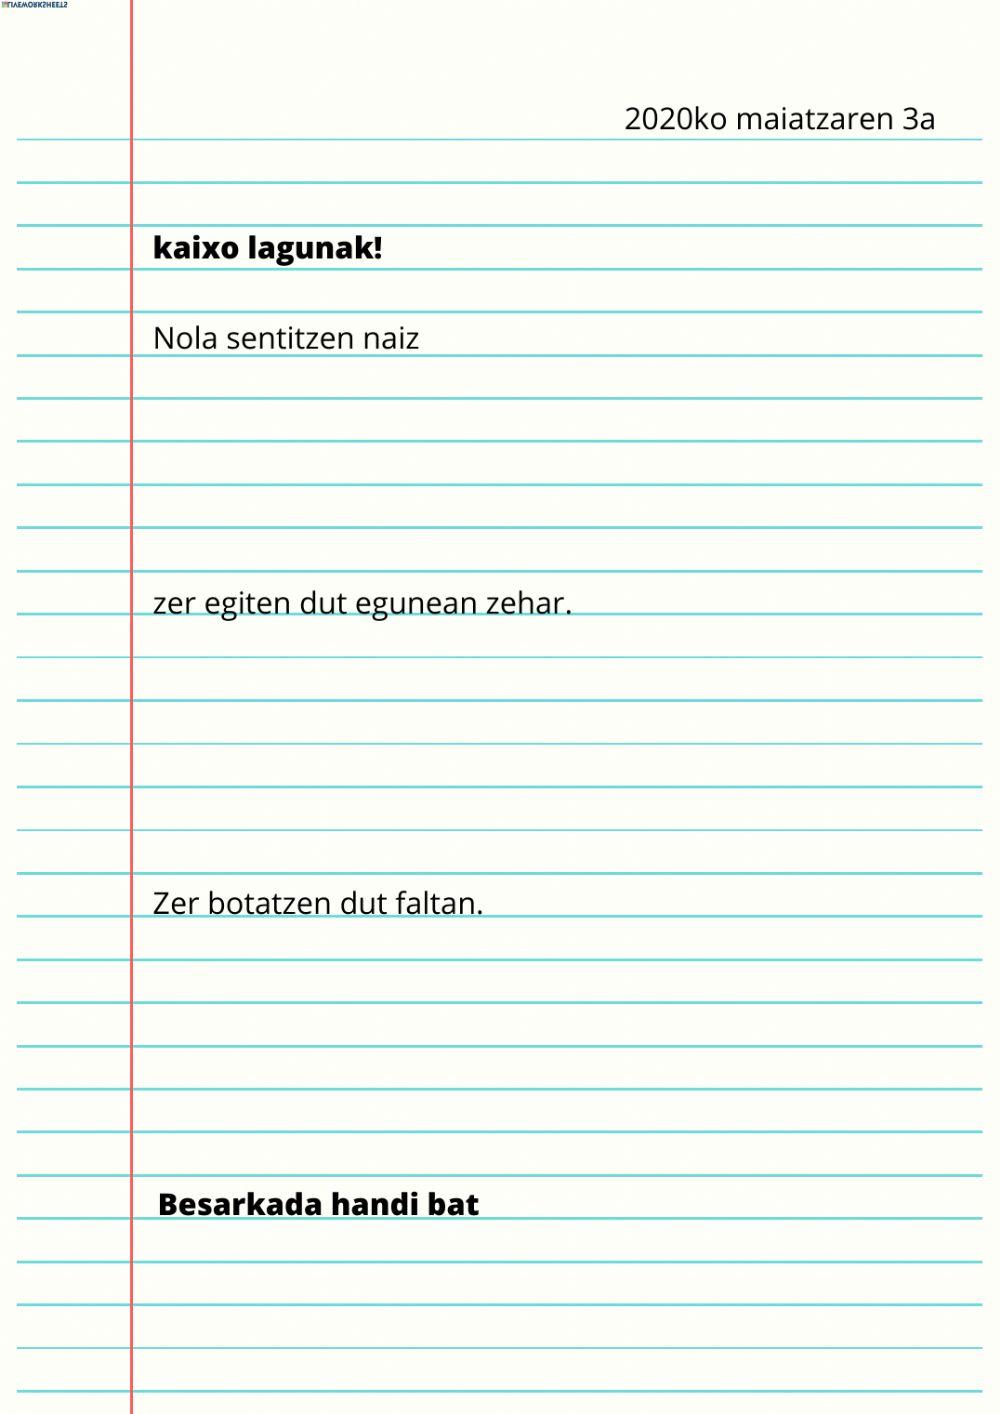 LIVEWORKSHEETS
2020ko maiatzaren 3a
kaixo lagunak!
Nola sentitzen naiz
zer egiten dut egunean zehar.
Zer botatzen dut faltan.
Besarkada handi bat